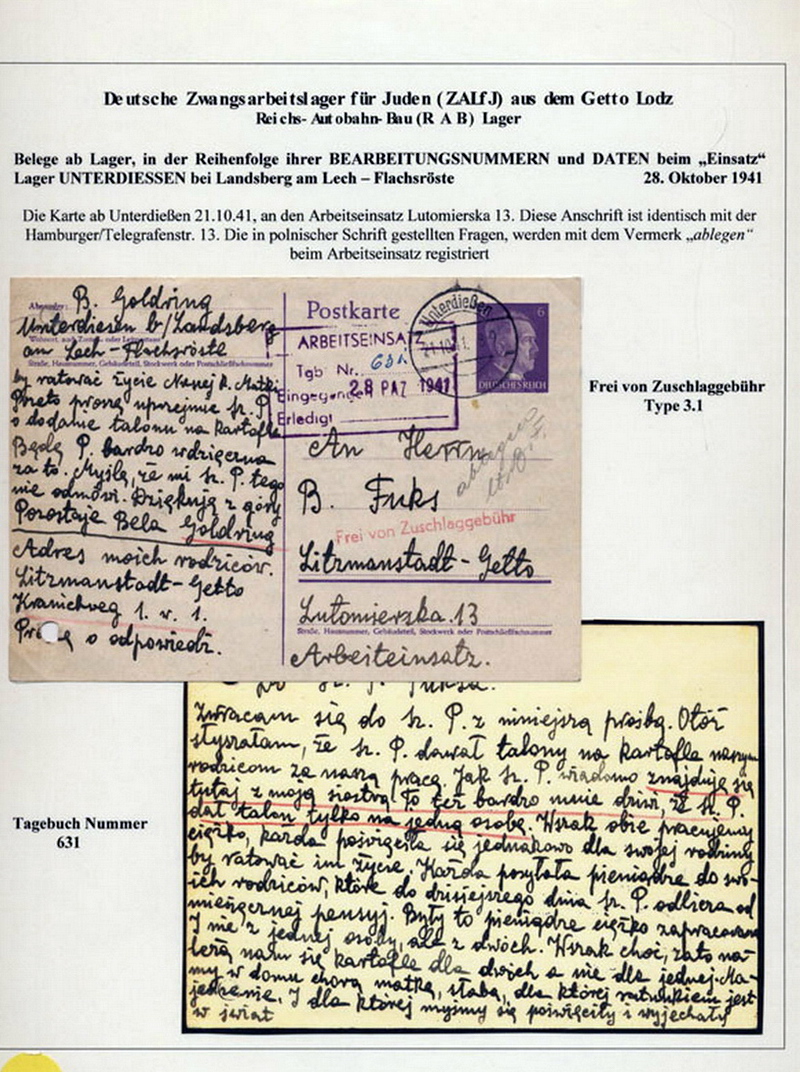 Deutsche Zwangsarbeitslager für Juden (ZALfJ) aus dem Getto Lodz
Reichs-Autobahn-Bau (R A B) Lager
Belege ab Lager, in der Reihenfolge ihrer BEARBEITUNGSNUMMERN und DATEN beim „Einsatz“
Lager UNTERDIESSEN bei Landsberg am Lech – Flachsröste 28. Oktober 1941
Die Karte ab Unterdießen 21.10.41, an den Arbeitseinsatz Lutomierska 13. Diese Anschrift ist identisch mit der
Hamburger/Telegrafenstr. 13. Die in polnischer Schrift gestellten Fragen, werden mit dem Vermerk „ablegen“
beim Arbeitseinsatz registriert
Absender: B. Goldring
Unterdiesen b/Landsberg
Wohnort, auch Zustell- oder Leitpostamt
am Lech-Flachsröste
Straße, Hausnummer, Gebäudeteil, Stockwerk oder Postschließfachnummer
by ratować życie Naszej k. Matki
Przeto proszę uprzejmie Sz. P.
o dodanie talonu na kartofle
Będę P. bardzo wdzięczna
za to. Myślę, że mi Sz. P. tego
nie odmówi. Dziękuję z góry
Pozostaje Bela Goldring
Adres moich rodziców.
Litzmanstadt-Getto
Kranichweg 1. w. 1.
o odpowiedź.
Postkarte
Unterdießen
21.10.41.
6
DEUTSCHES REICH
ARBEITSEINSATZ
Tgb Nr. 631.
Eingegangen 28 PAZ 1941
Erledigt
An Herrn
ablegen
B. Fuks
Frei von Zuschlaggebühr
Litzmanstadt-Getto
Lutomierska 13
Straße, Hausnummer, Gebäudeteil, Stockwerk oder Postschließfachnummer
Arbeiteinsatz.
Frei von Zuschlaggebühr
Type 3.1
Tagebuch Nummer
631
Sz. P. Fuksa.
Zwracam się do Sz. P. z niniejszą prośbą. Otóż
słyszałam, że Sz. P. dawał talony na kartofle naszym
rodzicom za naszą pracę. Jak Sz. P. wiadomo znajduję się
tutaj z moją siostrą. To też bardzo mnie dziwi, że Sz. P.
dał talon tylko na jedną osobę. Wszak obie pracujemy
ciężko, każda poświęciła się jednakowo dla swojej rodziny
by ratować im życie. Każda posyłała pieniądze do swo-
ich rodziców, które do dzisiejszego dnia Sz. P. odbiera od
miesięcznej pensyj. Były to pieniądze ciężko zapracowane
I nie z jednej osoby, ale z dwóch. Wszak choć, zato na-
leżą nam się kartofle dla dwojch a nie dla jednej. Ma-
my w domu chorą matkę, słabą, dla której ratunkiem jest
jedzenie. I dla której myśmy się poświęciły i wyjechały
w świat